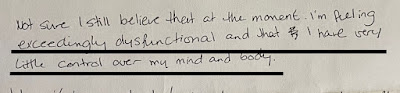 Not sure I still believe that at the moment. I'm feeling
exceedingly dysfunctional and that I have very
little control over my mind and body.